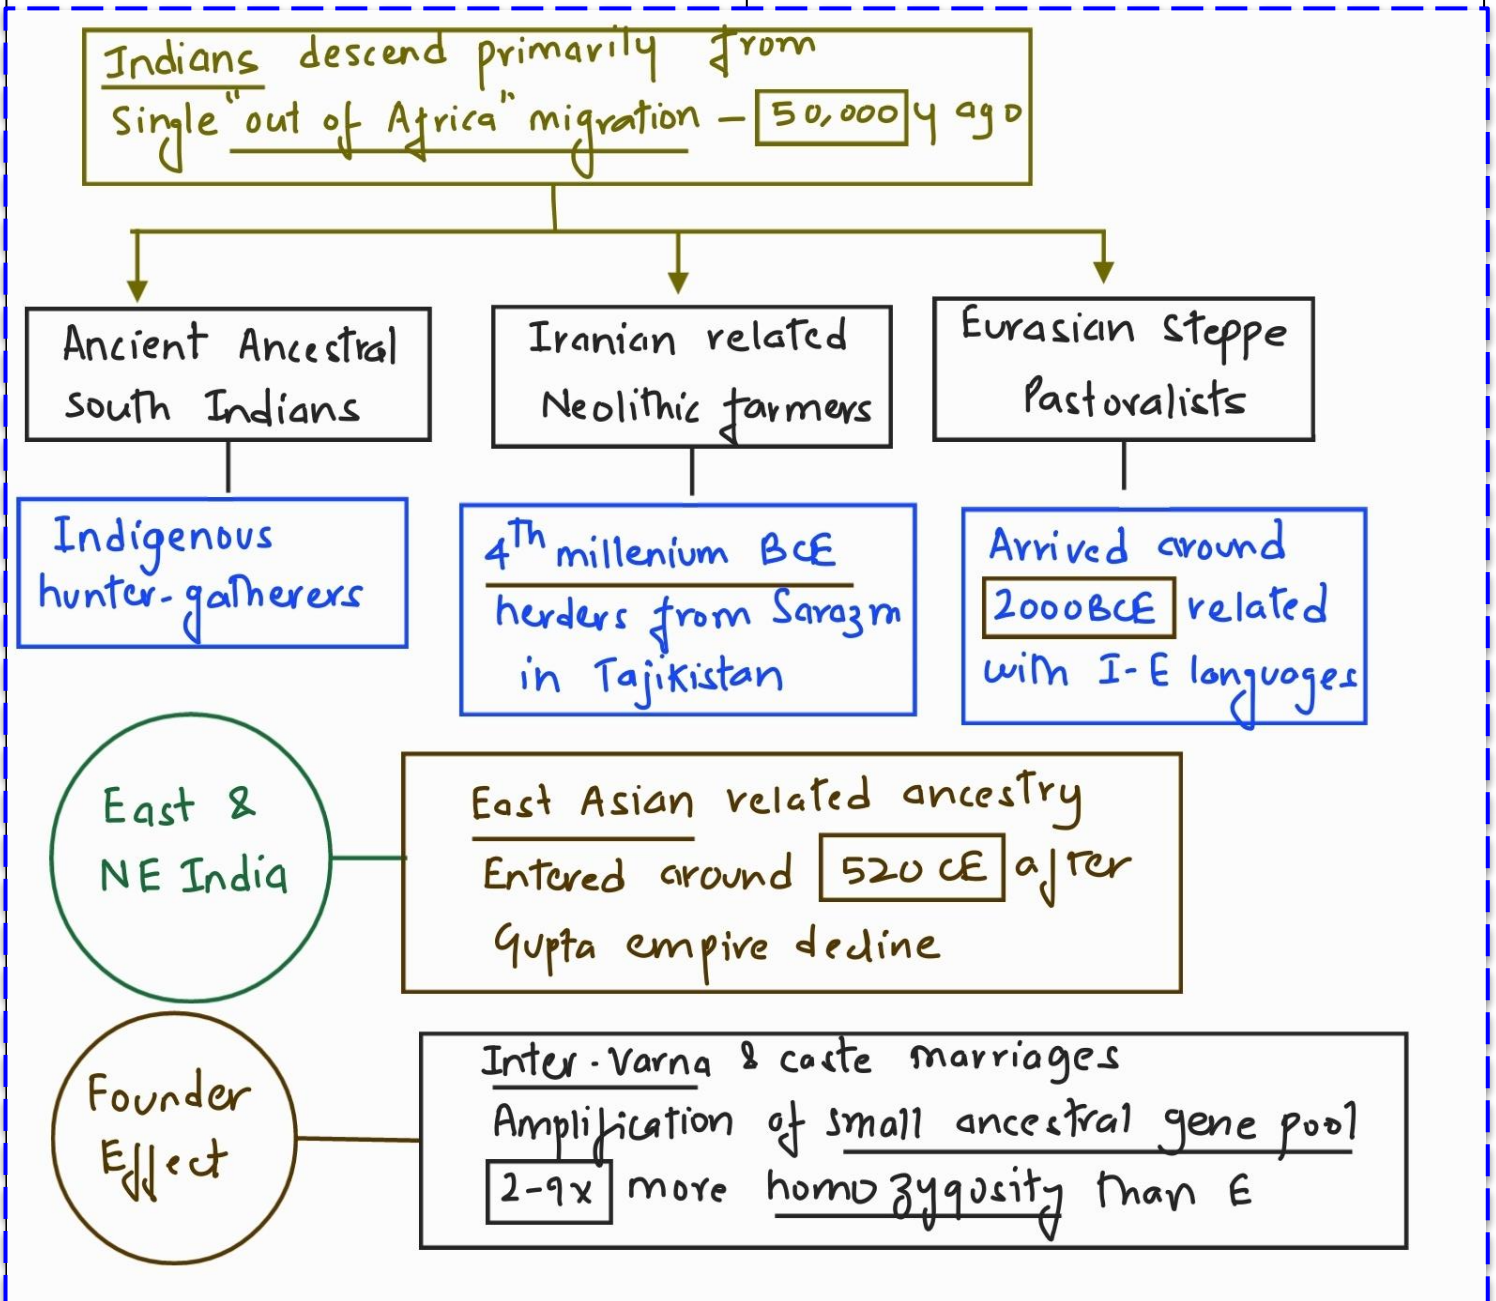 Indians descend primarily from
Single "out of Africa" migration – 50,000 y ago
Ancient Ancestral
South Indians
Iranian related
Neolithic farmers
Eurasian Steppe
Pastoralists
Indigenous
hunter-gatherers
4Th millenium BCE
herders from Sarazm
in Tajikistan
Arrived around
2000BCE related
with I-E languages
East &
NE India
East Asian related ancestry
Entered around 520 CE after
Gupta empire decline
Founder
Effect
Inter-Varna & caste marriages
Amplification of small ancestral gene pool
2-9x more homozygosity than E